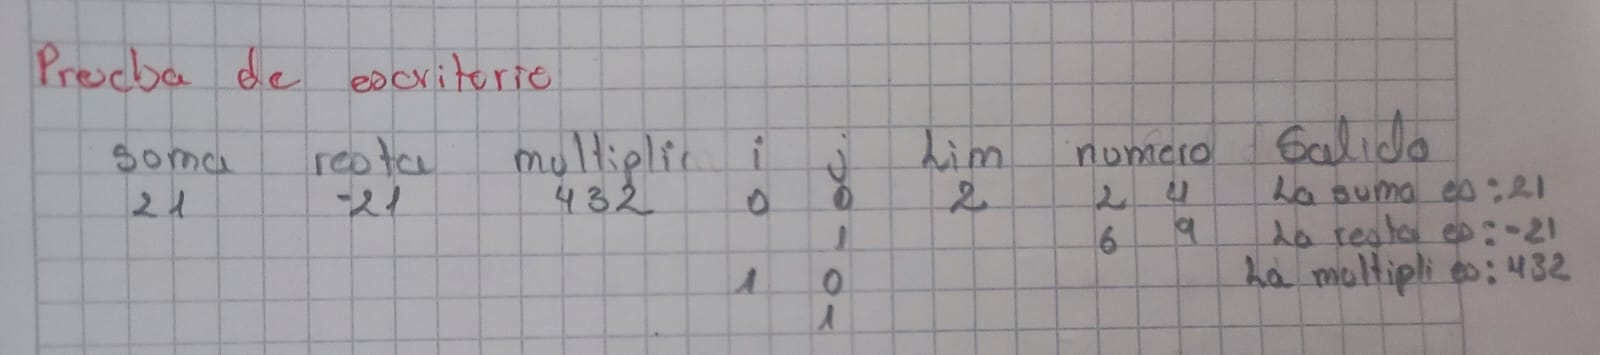 Prueba de escritorio
suma resta multiplic i j Lim numero Salida
21 -21 432 0 0 2 2 4 La suma es: 21
1 6 9 La resta es: -21
1 0 La multipli es: 432
1